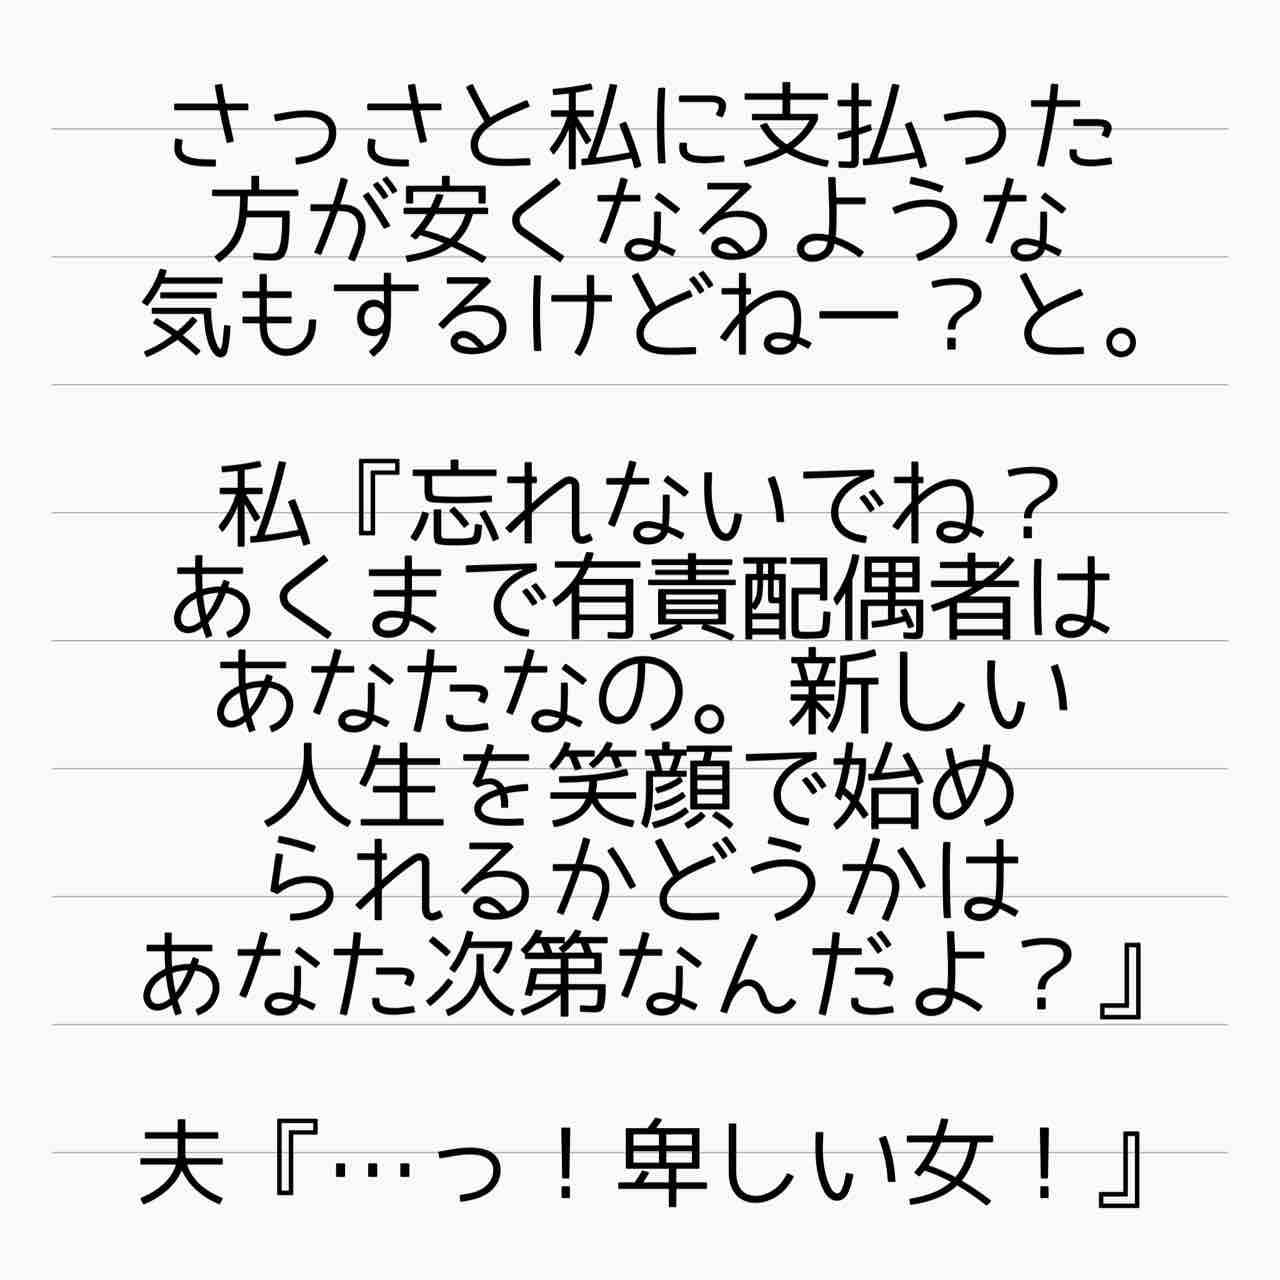 さっさと私に支払った
方が安くなるような
気もするけどねー？と。
私『忘れないでね？
あくまで有責配偶者は
あなたなの。新しい
人生を笑顔で始め
られるかどうかは
あなた次第なんだよ？』
夫『…っ！卑しい女！』